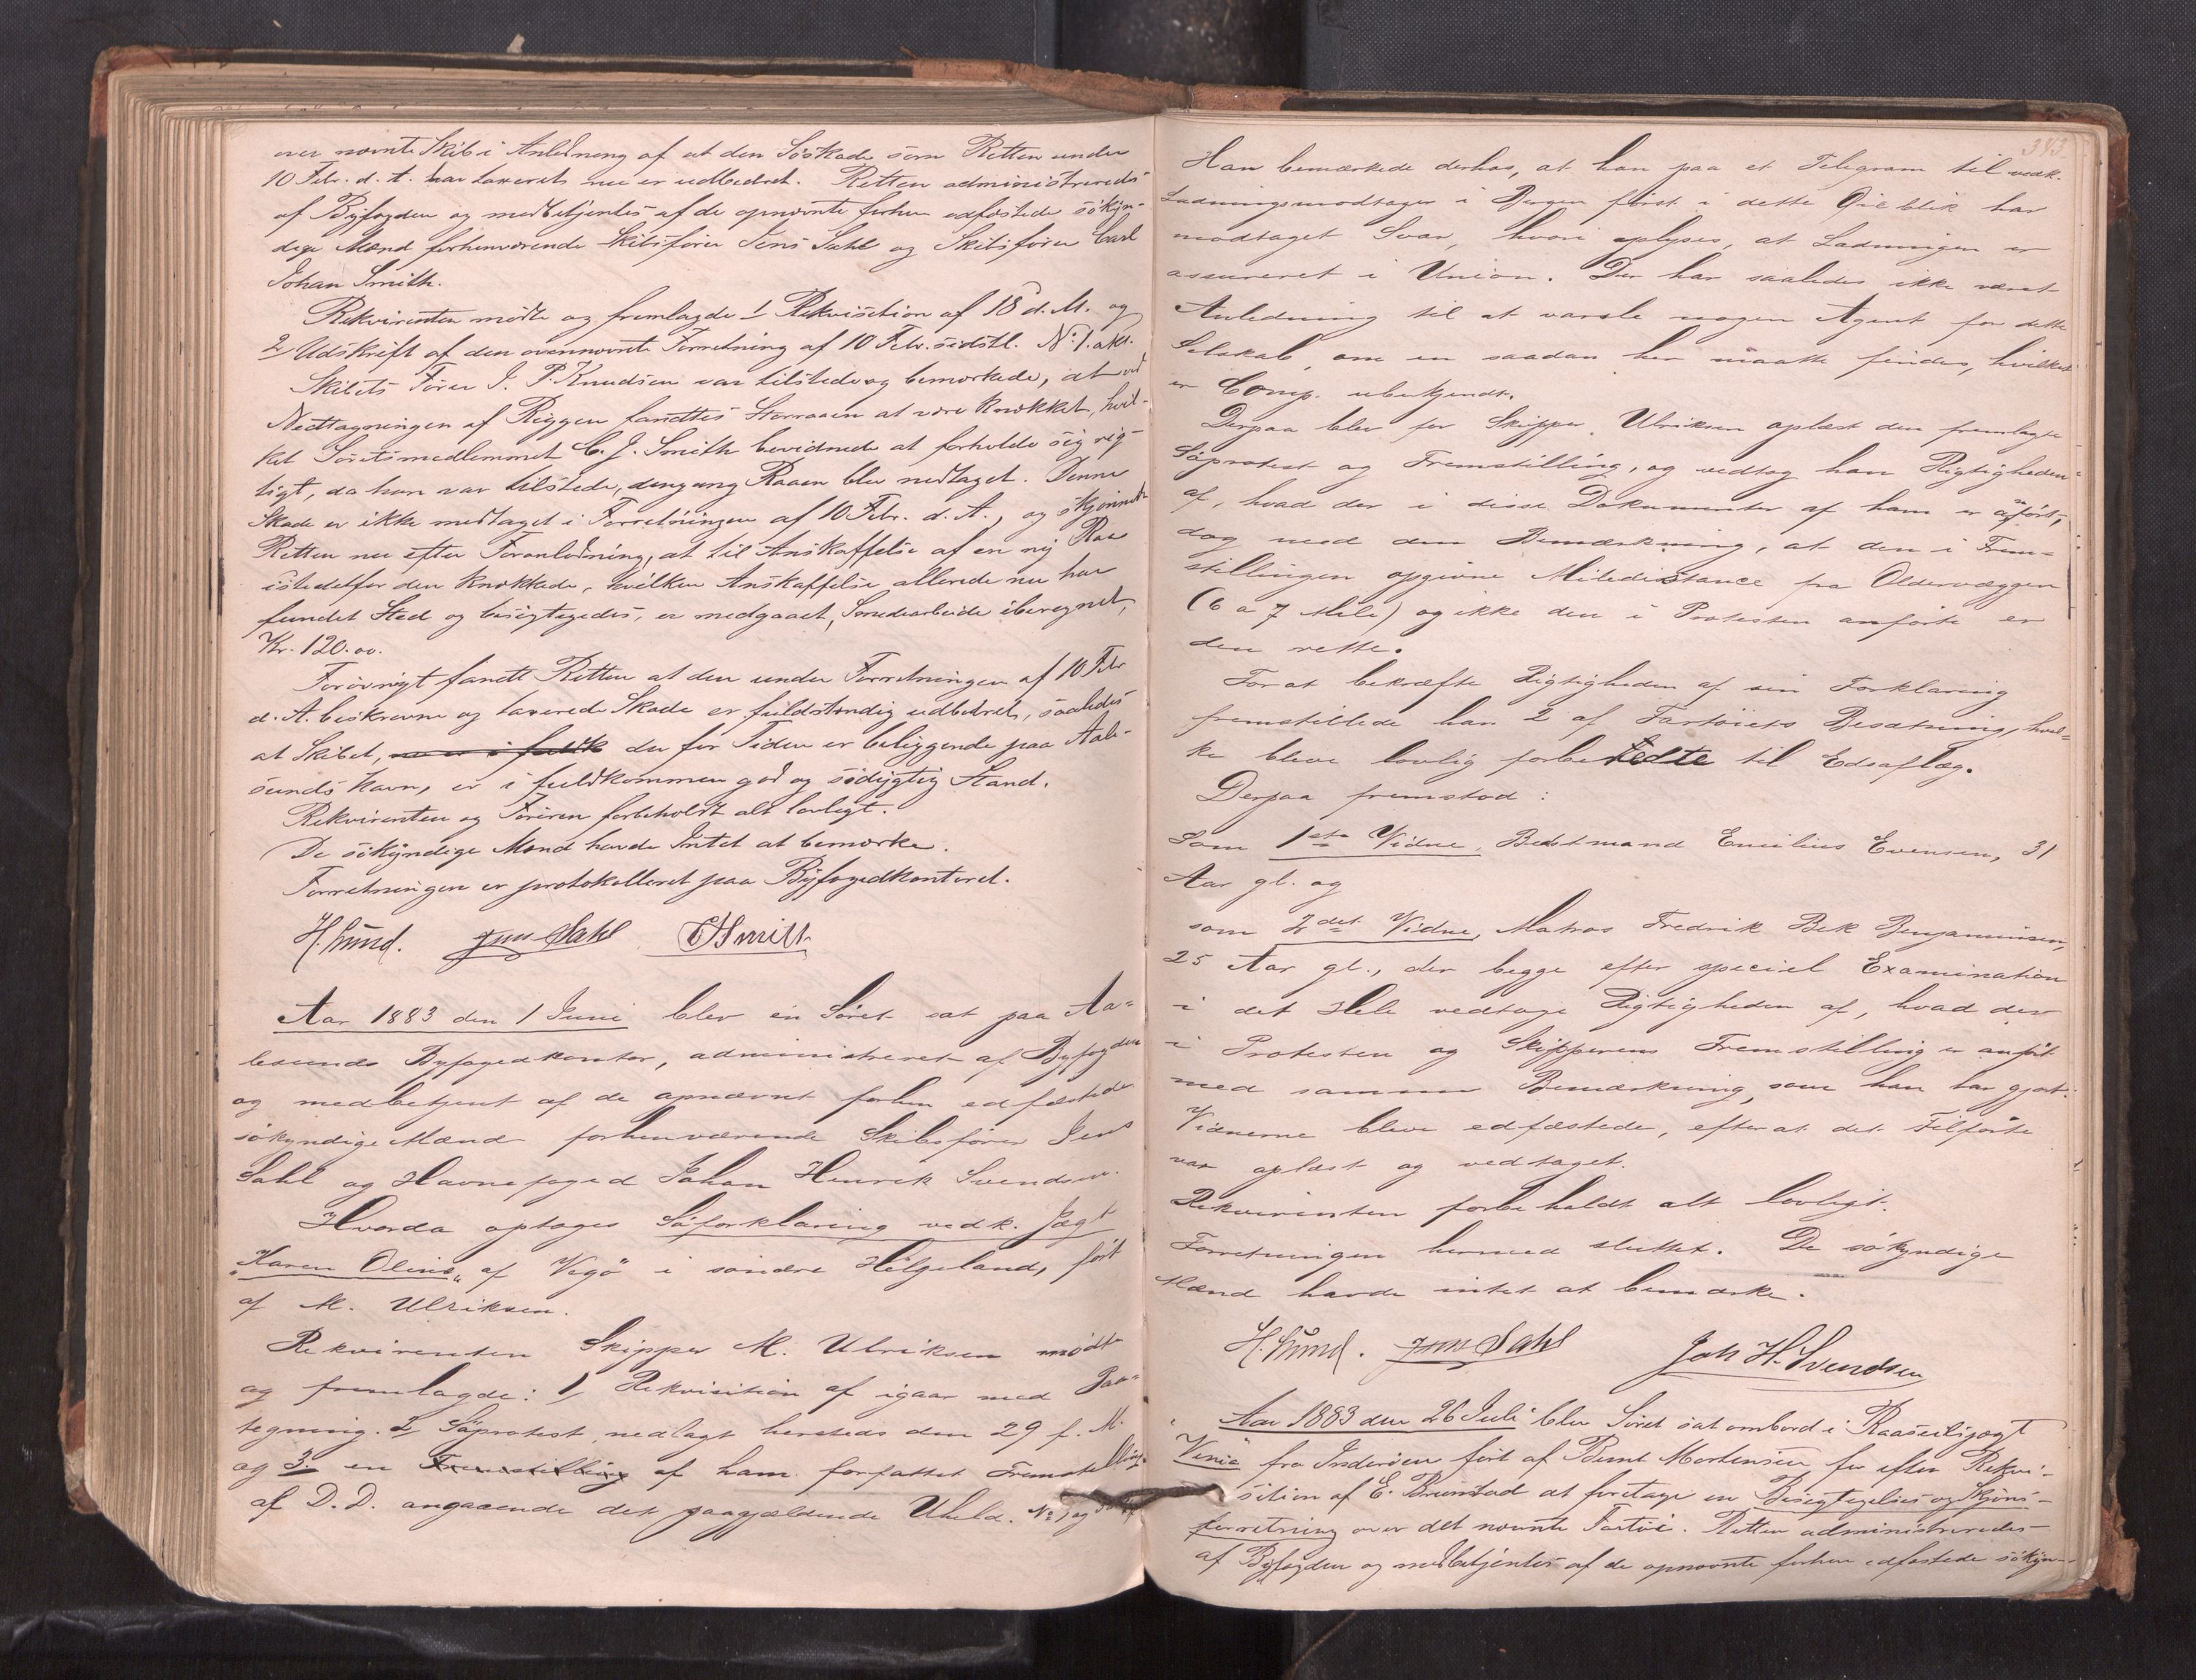 over nævnte Skib i Anledning af at den Söskade som Retten under
10 Febr. d. A. har taxeret nu er udbedret. Retten administreredes
af Byfogden og medbetjentes af de opnævnte forhen edfæstede sökyn-
dige Mænd forhenværende Skibsförer Jens Dahl og Skibsförer Carl
Johan Smith.
Rekvirenten mödte og fremlagde 1 Rekvisition af 18 d. M. og
2 Udskrift af den ovennævnte Forretning af 10 Febr. sidstl. No 1. akt.
Skibets Förer J. P. Knudsen var tilstede og bemærkede, at ved
Nedtagningen af Riggen fandtes Storraaen at være knækket, hvil-
ket Söretsmedlemmet C. J. Smith bevidnede at forholde sig rig-
tigt, da han var tilstede, dengang Raaen blev nedtaget. Denne
Skade er ikke medtaget i Forretningen af 10 Febr. d. A., og skjönnede
Retten nu efter Foranledning, at til Anskaffelse af en ny Raa
istedetfor den knækkede, hvilken Anskaffelse allerede nu har
fundet Sted og besigtigedes, er medgaaet, Smedearbeide iberegnet,
Kr. 120.00.
Forövrigt fandt Retten at den under Forretningen af 10 Febr
d. A. beskrevne og taxerede Skade er fuldstændig udbedret, saaledes
at Skibet, der for Tiden er beliggende paa Aale-
sunds Havn, er i fuldkommen god og södygtig Stand.
Rekvirenten og Föreren forbeholdt alt lovligt.
De sökyndige Mænd havde Intet at bemærke.
Forretningen er protokolleret paa Byfogedkontoret.
H. Lund. Jens Dahl CJSmith
Aar 1883 den 1 Juni blev en Söret sat paa Aa-
lesunds Byfogedkontor, administreret af Byfogden
og medbetjent af de opnævnt forhen edfæstede
sökyndige Mænd forhenværende Skibsförer Jens
Dahl og Havnefoged Johan Henrik Svendsen.
Hvorda optoges Söforklaring vedk. Jægt
"Karen Oline" af Vegö i söndre Helgeland, fört
af M. Ulriksen.
Rekvirenten Skipper M. Ulriksen mödt
og fremlagde: 1, Rekvisition af igaar med Paa-
tegning. 2, Söprotest, nedlagt hersteds den 29 f. M.
og 3. en Fremstilling af ham forfattet Fremstilling
af D. D. angaaende det paagjældende Uheld. No 1 og
343.
Han bemærkede derhos, at han paa et Telegram til vedk.
Ladningsmodtager i Bergen först i dette Öieblik har
modtaget Svar, hvori oplyses, at Ladningen er
assureret i Union. Der har saaledes ikke været
Anledning til at varsle nogen Agent for dette
Selskab, om en saadan her maatte findes, hvilket
er Comp. ubekjendt.
Derpaa blev for Skipper Ulriksen oplæst den fremlagte
Söprotest og Fremstilling, og vedtog han Rigtigheden
af, hvad der i disse Dokumenter af ham er anfört,
dog med den Bemærkning, at den i Frem-
stillingen opgivne Miledistance fra Oldervæggen
(6 a 7 Mile) og ikke den i Protesten anförte er
den rette.
For at bekræfte Rigtigheden af sin Forklaring
fremstillede han 2 af Fartöiets Besætning, hvil-
ke bleve lovlig forberedte til Edsaflæg.
Derpaa fremstod:
Som 1ste Vidne, Bedstmand Emilius Evensen, 31
Aar gl. og
som 2det Vidne, Matros Fredrik Bek Benjaminsen,
25 Aar gl., der begge efter speciel Examination
i det Hele vedtoge Rigtigheden af, hvad der
i Protesten og Skipperens Fremstilling er anfört
med samme Bemærkning, som han har gjort.
Vidnerne bleve edfæstede, efterat det Tilförte
var oplæst og vedtaget.
Rekvirenten forbeholdt alt lovligt.
Forretningen hermed sluttet. De sökyndige
Mænd havde intet at bemærke.
H. Lund. Jens Dahl Joh H. Svendsen
Aar 1883 den 26 Juli blev Söret sat ombord i Raaseiljægt
fra Inderöen fört af Bernt Mortensen for efter Rekvi-
sition af E. Brunstad at foretage en Besigtigelses og Skjöns-
forretning over det nævnte Fartöi. Retten administreredes
af Byfogden og medbetjentes af de opnævnte forhen edfæstede sökyn-